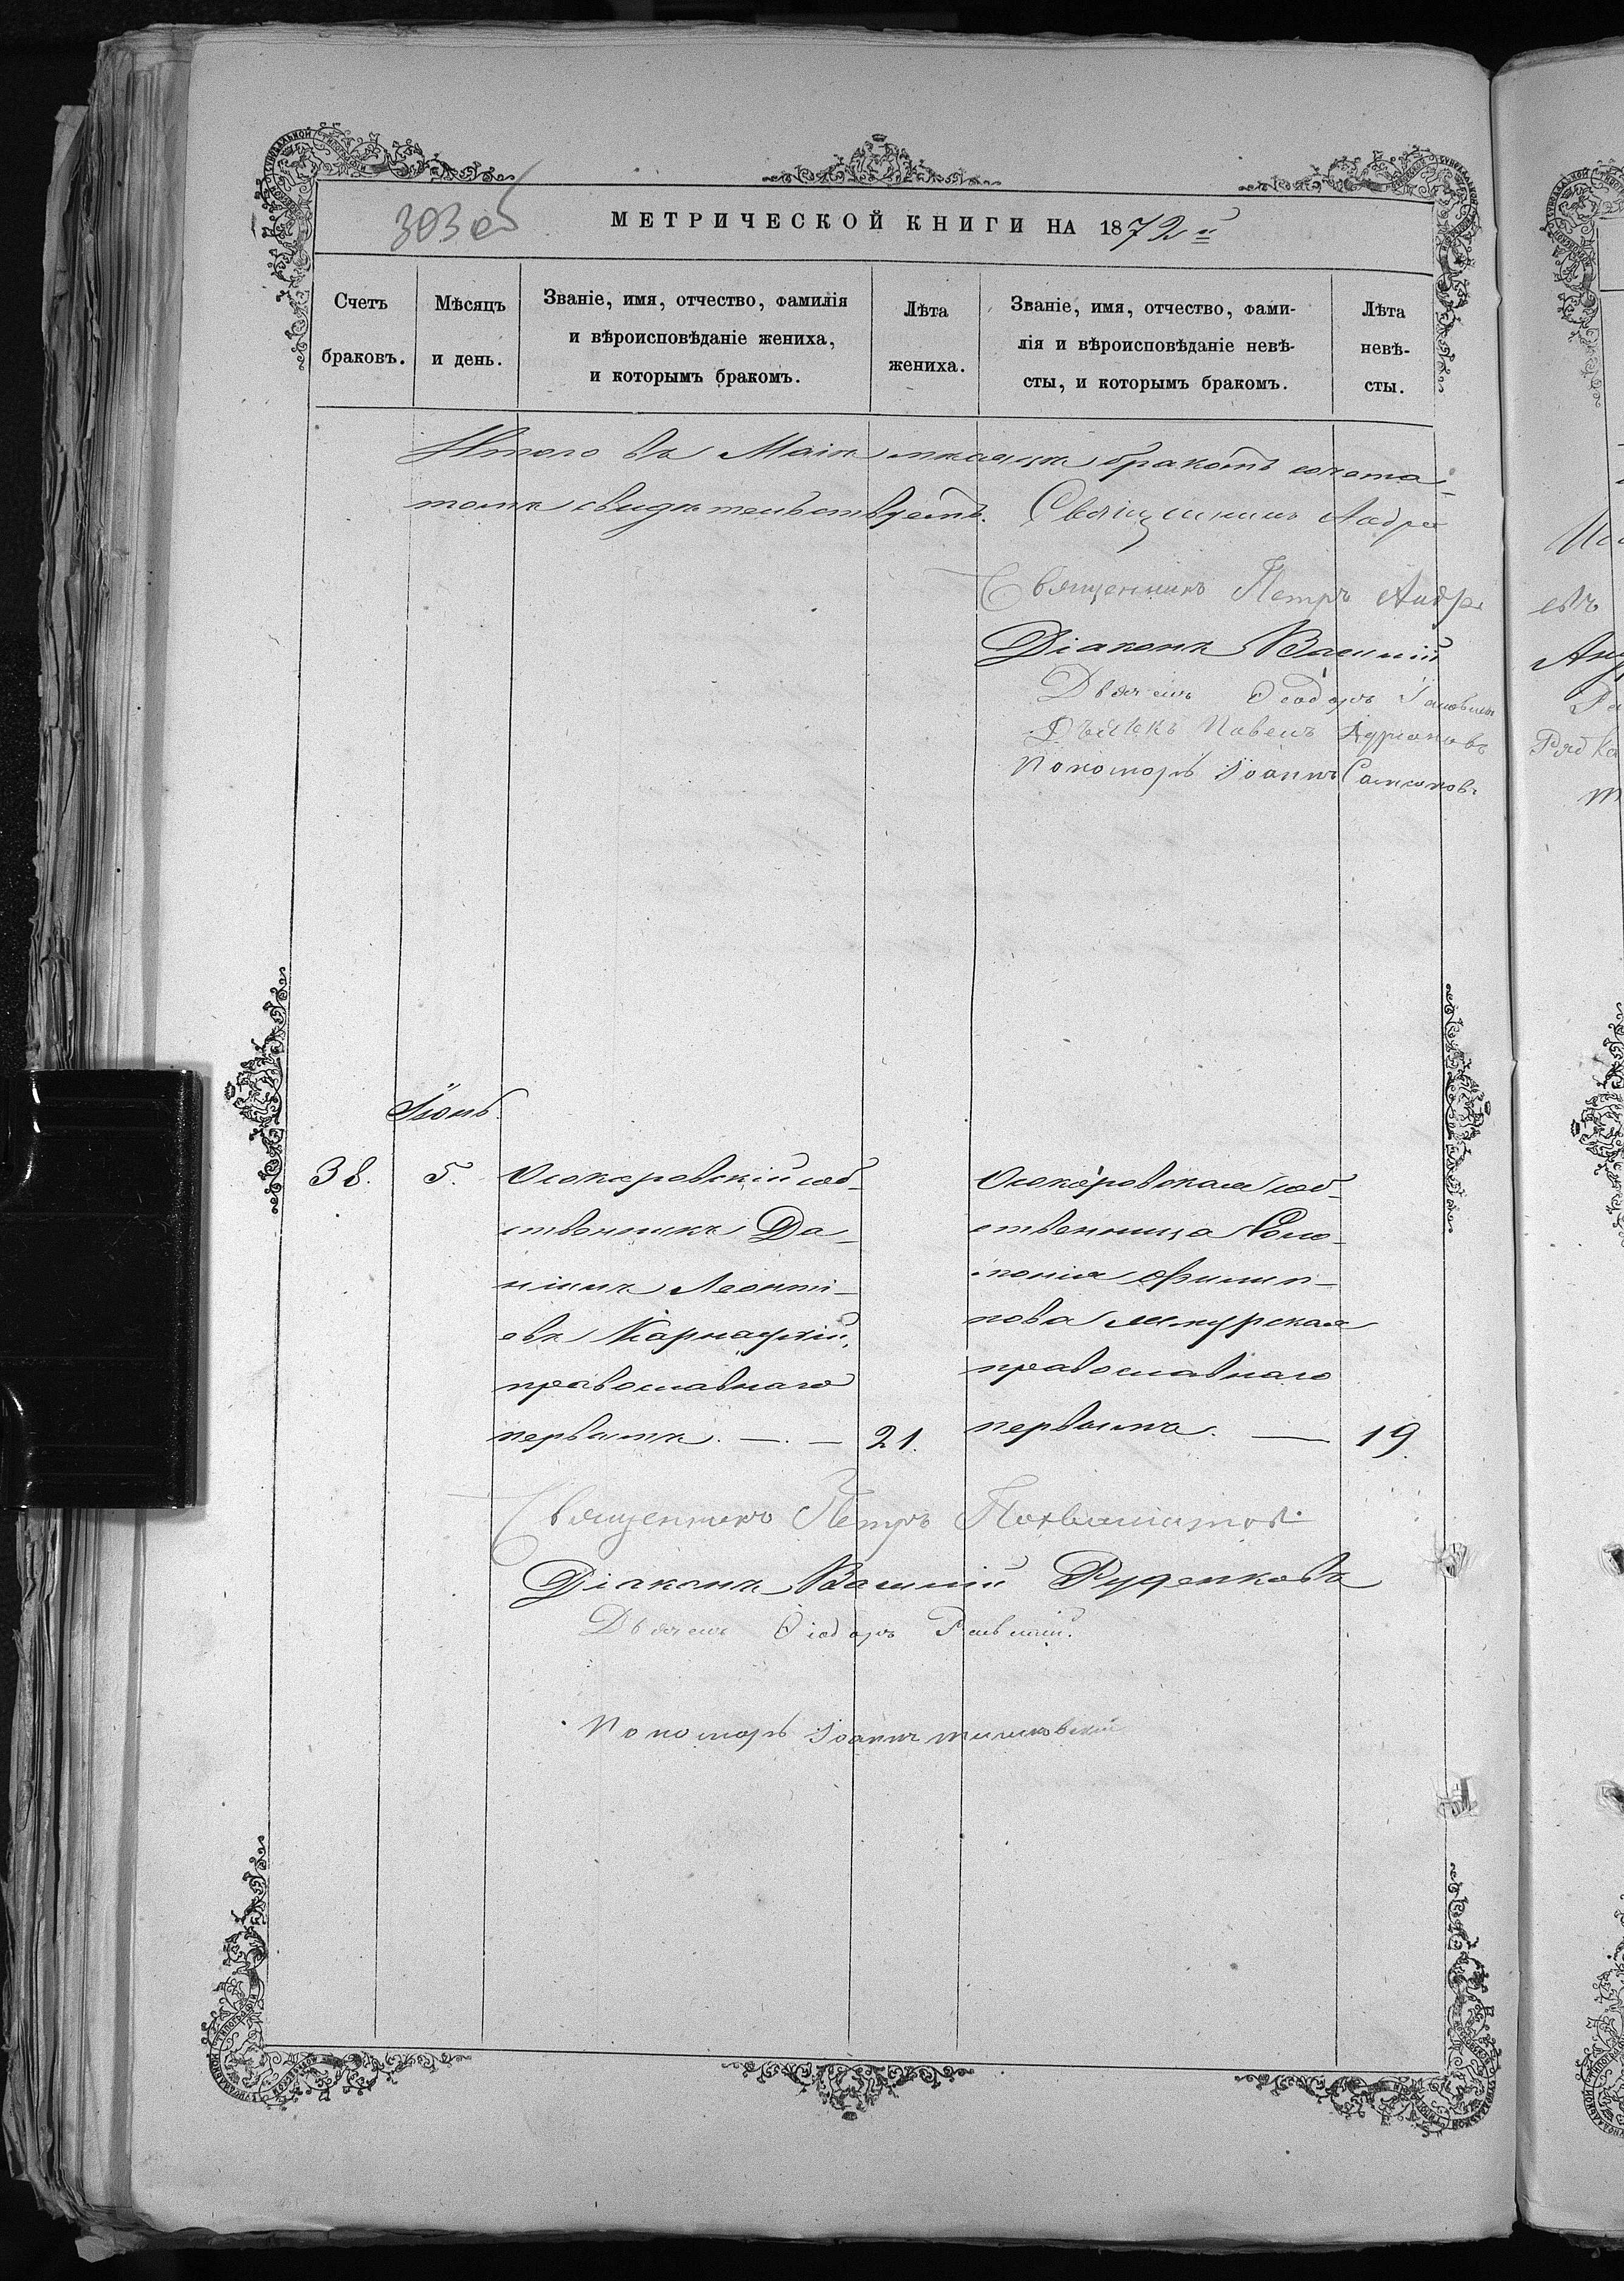 303 об
МЕТРИЧЕСКОЙ КНИГИ НА 1872й
Счетъ браковъ.
Мѣсяцъ и день.
Званіе, имя, отчество, фамилія
и вѣроисповѣданіе жениха,
и которымъ бракомъ.
Лѣта жениха.
Званіе, имя, отчество, фами-
лія и вѣроисповѣданіе невѣ-
сты, и которымъ бракомъ.
Лѣта невѣ-
сты.
Итого въ Маіѣ мѣсяцѣ бракомъ сочета-
свидѣтельствуетъ. Священникъ Андре
Священникъ Петръ Андре
Діаконъ Василій
Дьячекъ Ѳеодоръ
Дьячекъ Павелъ Адріановъ
Пономарь Іоаннъ
Іюнь
38. 5.
Осокоровскій соб-
ственникъ Да-
ніилъ Леонті-
евъ Карнаухій,
православнаго
первымъ. — . — 21.
Осокоровская соб-
ственница Соло-
монія Филип-
пова
православнаго
первымъ. — 19.
Священникъ Петръ
Діаконъ Василій Руденковъ
Дьячекъ Ѳеодоръ
Пономарь Іоаннъ